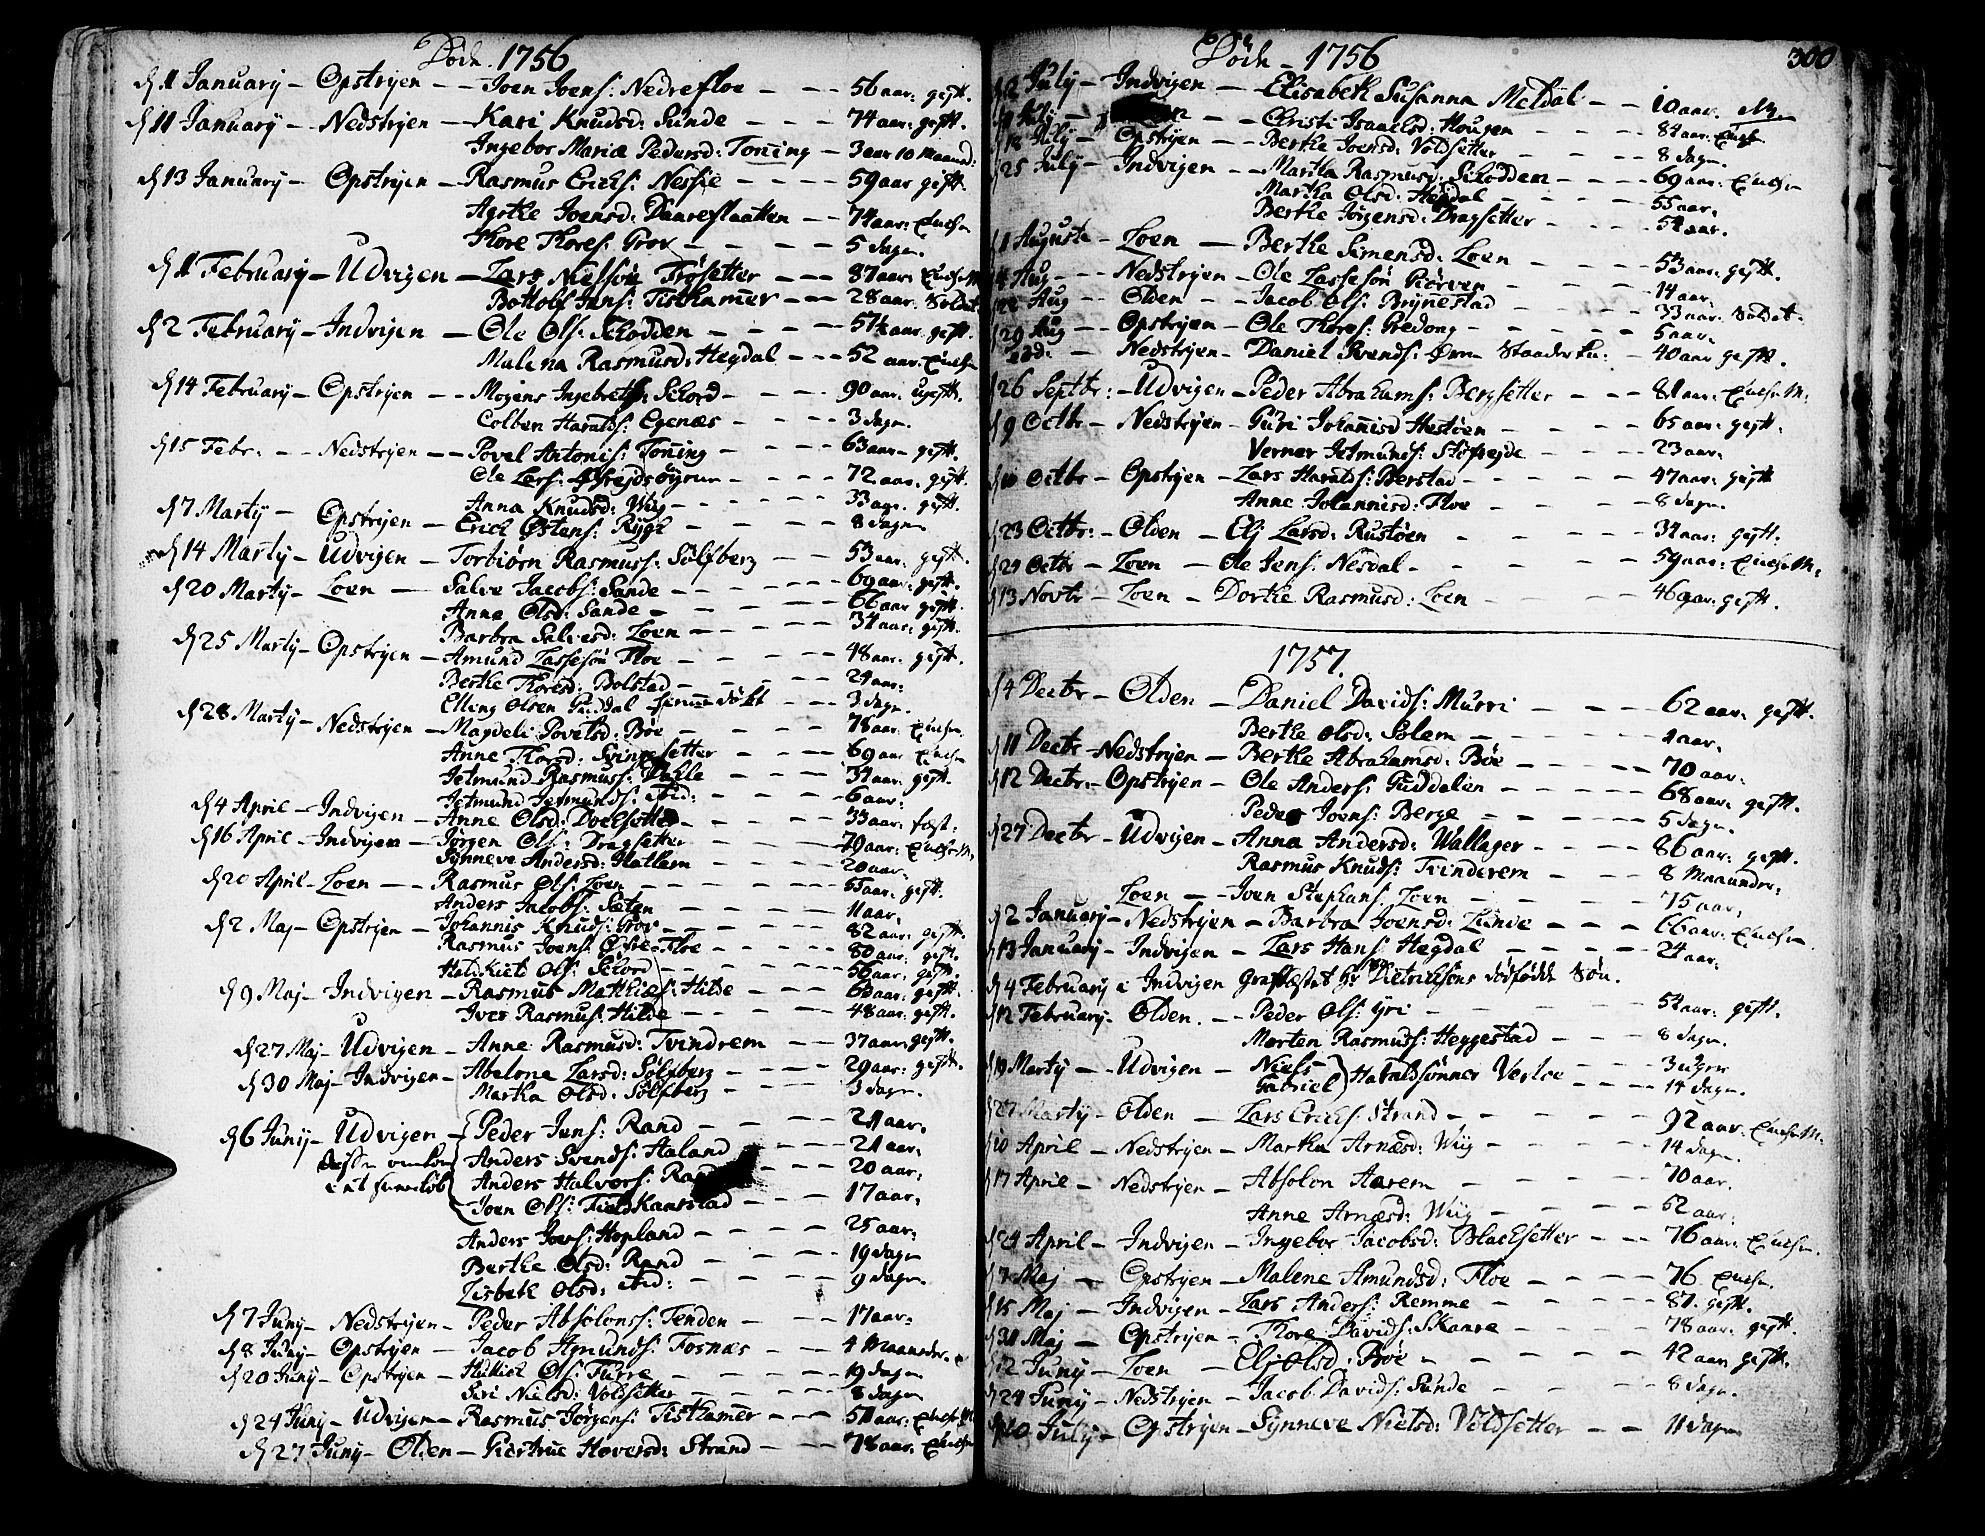 Döde 1756
d 11 January - Opstryen - Joen Joens: Nedrefloe - 56 aar: gift.
d 11 January - Nedstryen - Kari Knudsd: Sunde - 74 aar: gift.
Ingebor Maria Pedersd: Toning - 3 aar 10 Maaned:
d 13 January - Opstryen - Rasmus Ericks: Nessie - 59 aar gift.
Agethe Joensd: Daareflaatten - 74 aar: Enche
Thore Thores: Grov - 5 dage
d 1 February - Udvigen - Lars Nielssøn Frøsetter - 87 aar: Enche M
Bottolf Jens: Tisthamer - 28 aar. Soldat
d 2 February - Indvigen - Ole Ols: Skodden - 57½ aar. gift.
Malena Rasmusd: Hegdal - 52 aar. Enche
d 14 February - Opstryen - Mogens Ingebreths: Skord - 90 aar. ugift.
Colben Haralds: Egenæs - 3 dage
d 15 Febr: - Nedstryen - Povel Antonis: Toning - 63 aar - gift.
Ole Lars: - 72 aar. gift.
Anna Knudsd: Wiig - 33 aar. gift.
d 7 Marty - Opstryen - Erick Østens: Rygg - 8 dage
d 14 Marty - Udvigen - Torbiørn Rasmuss: Sølfberg - 53 aar: gift.
d 20 Marty - Loen - Salve Jacobs: Sande - 69 aar: gift.
Anne Olsd: Sande - 66 aar gift.
Barbra Salvesd: Loen - 34 aar: gift.
d 25 Marty - Opstryen - Amund Lassesøn Floe - 48 aar. gift.
Berthe Thoresd: Bolstad - 29 aar:
Elling Olsen Guddal hiemmedøbt - 3 dage.
d 28 Marty - Nedstryen - Magdeli Povelsd: Bøe - 78 aar: Enche
Anne Thorsd: Svingesetter - 69 aar Enche
Jetmund Rasmuss: Dahle - 34 aar: gift.
Jetmund Jetmunds: ibid: - 6 aar:
d 4 April - Indvigen - Anne Olsd: Dochsetter - 33 aar: fæst:
d 16 April - Indvigen - Jørgen Ols: Dragsetter - 79 aar: Enche M,
Synneve Andersd: Hatlem - 20 aar.
d 20 April - Loen - Rasmus Ols: Loen - 55 aar. gift.
Anders Jacobs: Sæten - 11 aar,
d 2 Maj - Opstryen - Johannis Knuds: Grov - 82 aar: gift.
Rasmus Joens: Øvre-Floe - 80 aar: gift.
Haldkield Ols: Skord - 56 aar: gift.
d 9 Maj - Indvigen - Rasmus Mathies: Hilde - 63 aar: gift.
Iver Rasmus: Hilde - 48 aar: gift.
d 27 Maj - Udvigen - Anne Rasmusd: Tvindrem - 37 aar. gift.
d 30 Maj - Indvigen - Abelone Larsd: Sølfberg - 29 aar: gift.
Martha Olsd: Sølfberg - 3 dage.
d 6 Juny - Udvigen - Peder Jens: Rand - 24 aar.
Disse omkom Anders Svends: Haland - 21 aar,
Anders Halvors: Rand - 20 aar,
Joen Ols: Fieldskaarstad - 17 aar,
Anders Joens: Hopland - 25 aar.
Berthe Olsd: Rand - 19 dage
Lisbeth Olsd: ibid: - 9 dage.
d 7 Juny - Nedstryen - Peder Absolons: Tenden - 17 aar.
d 8 Juny - Opstryen - Jacob Amunds: Fosnæs - 4 Maaneder.
d 20 Juny - Opstryen - Ols: Furre - 19 dage
Siri Nielsd: Voldsetter - 8 dage
d 24 Juny - Udvigen - Rasmus Jørgens: Tisthamer - 51 aar: Enche M
d 27 Juny - Olden - Giertrue Hoversd: Strand - 78 aar. Enche
Döde - 1756
300
d 2 July - Indvigen - Elisabeth Susanna Meldal - 10 aar.
July - Christi Isaachsd: Hougen - 82 aar. Enche
d 18 July - Opstryen - Berthe Joensd: Voldsetter - 8 dage.
d 25 July - Indvigen - Martha Rasmusd: Skodden - 69 aar: Enche
Martha Olsd: Hegdal - 55 aar.
Berthe Jørgensd: Dragsetter - 54 aar.
d 1 Augusti - Loen - Berthe Simensd: Loen - 53 aar: gift.
Aug - Nedstryen - Ole Lassesøn Giørven - 14 aar.
d 22 Aug - Olden - Jacob Ols: Brynestad - 33 aar: Soldat.
d 29 Aug - Opstryen - Ole Thores: Gredong - 5 aar.
- Nedstryen - Daniel Svends: - 40 aar gift.
d 26 Septbr: - Udvigen - Peder Abrahams: Bergsetter - 81 aar: Enche M.
d 9 Octbr - Nedstryen - Guri Johannisd Hestøen - 65 aar: gift.
Verner Jetmunds: - 23 aar.
d 10 Octbr - Opstryen - Lars Haralds: Berstad - 47 aar: gift
Anne Johannisd: Floe - 8 dage.
d 23 Octbr: - Olden - Eli Larsd: Rustøen - 34 aar: gift.
d 24 Octbr - Loen - Ole Jens: Nesdal - 59 aar: Enche M,
d 13 Novbr - Loen - Dorthe Rasmusd: Loen - 46 aar: gift.
1757.
d 4 Decbr - Olden - Daniel Davids: Murri - 62 aar: gift.
Berthe Olsd: Solem - 1 aar,
d 11 Decbr - Nedstryen - Berthe Abrahamsd: Bøe - 70 aar:
d 12 Decbr: - Opstryen - Ole Anders: Guddalen - 68 aar: gift.
Peder Joens: Berge - 5 dage.
d 27 Decbr - Udvigen - Anna Andersd: Wallager - 86 aar: gift.
Rasmus Knuds: Tvinderem - 8 Maaneder,
Loen - Iven Stephans: Loen - 75 aar,
d 2 January - Nedstryen - Barbra Joensd: Lunde - 66 aar: Enche
d 13 January - Indvigen - Lars Hans: Hegdal - 24 aar:
d 4 February i Indvigen Grafæstet Hr Dietrichsons dødfødde Søn.
d 12 February - Olden. - Peder Ols: Yri - 54 aar: gift.
Morten Rasmuss: Heggestad - 8 dage.
d 19 Marty - Udvigen - Niels - 3 uger
Gabriel Haraldsønner Verloe - 14 dage.
d 27 Marty - Olden - Lars Ericks: Strand - 92 aar: Enche M,
d 10 April - Nedstryen - Martha Arnæsd: Wiig - 14 dage.
d 17 April - Nedstryen - Absolon Aarem - 70 aar.
Anne Arnæsd: Wiig - 62 aar:
d 24 April - Indvigen - Ingebor Jacobsd: Blachsetter - 76 aar: Enche.
d 7 Maj - Opstryen - Malene Amundsd: Floe - 76 Enche
d 15 Maj - Indvigen - Lars Anders: Remme - 87. gift.
d 31 Maj - Opstryen - Thore Davids: Skaare - 78 aar: gift.
d 12 Juny - Loen - Eli Olsd: Bøe - 42 aar gift.
d 24 Juny - Nedstryen - Jacob Davids: Sunde - 8 dage.
d 10 July - Opstryen - Synneve Nielsd: Voldsetter - 11 dage